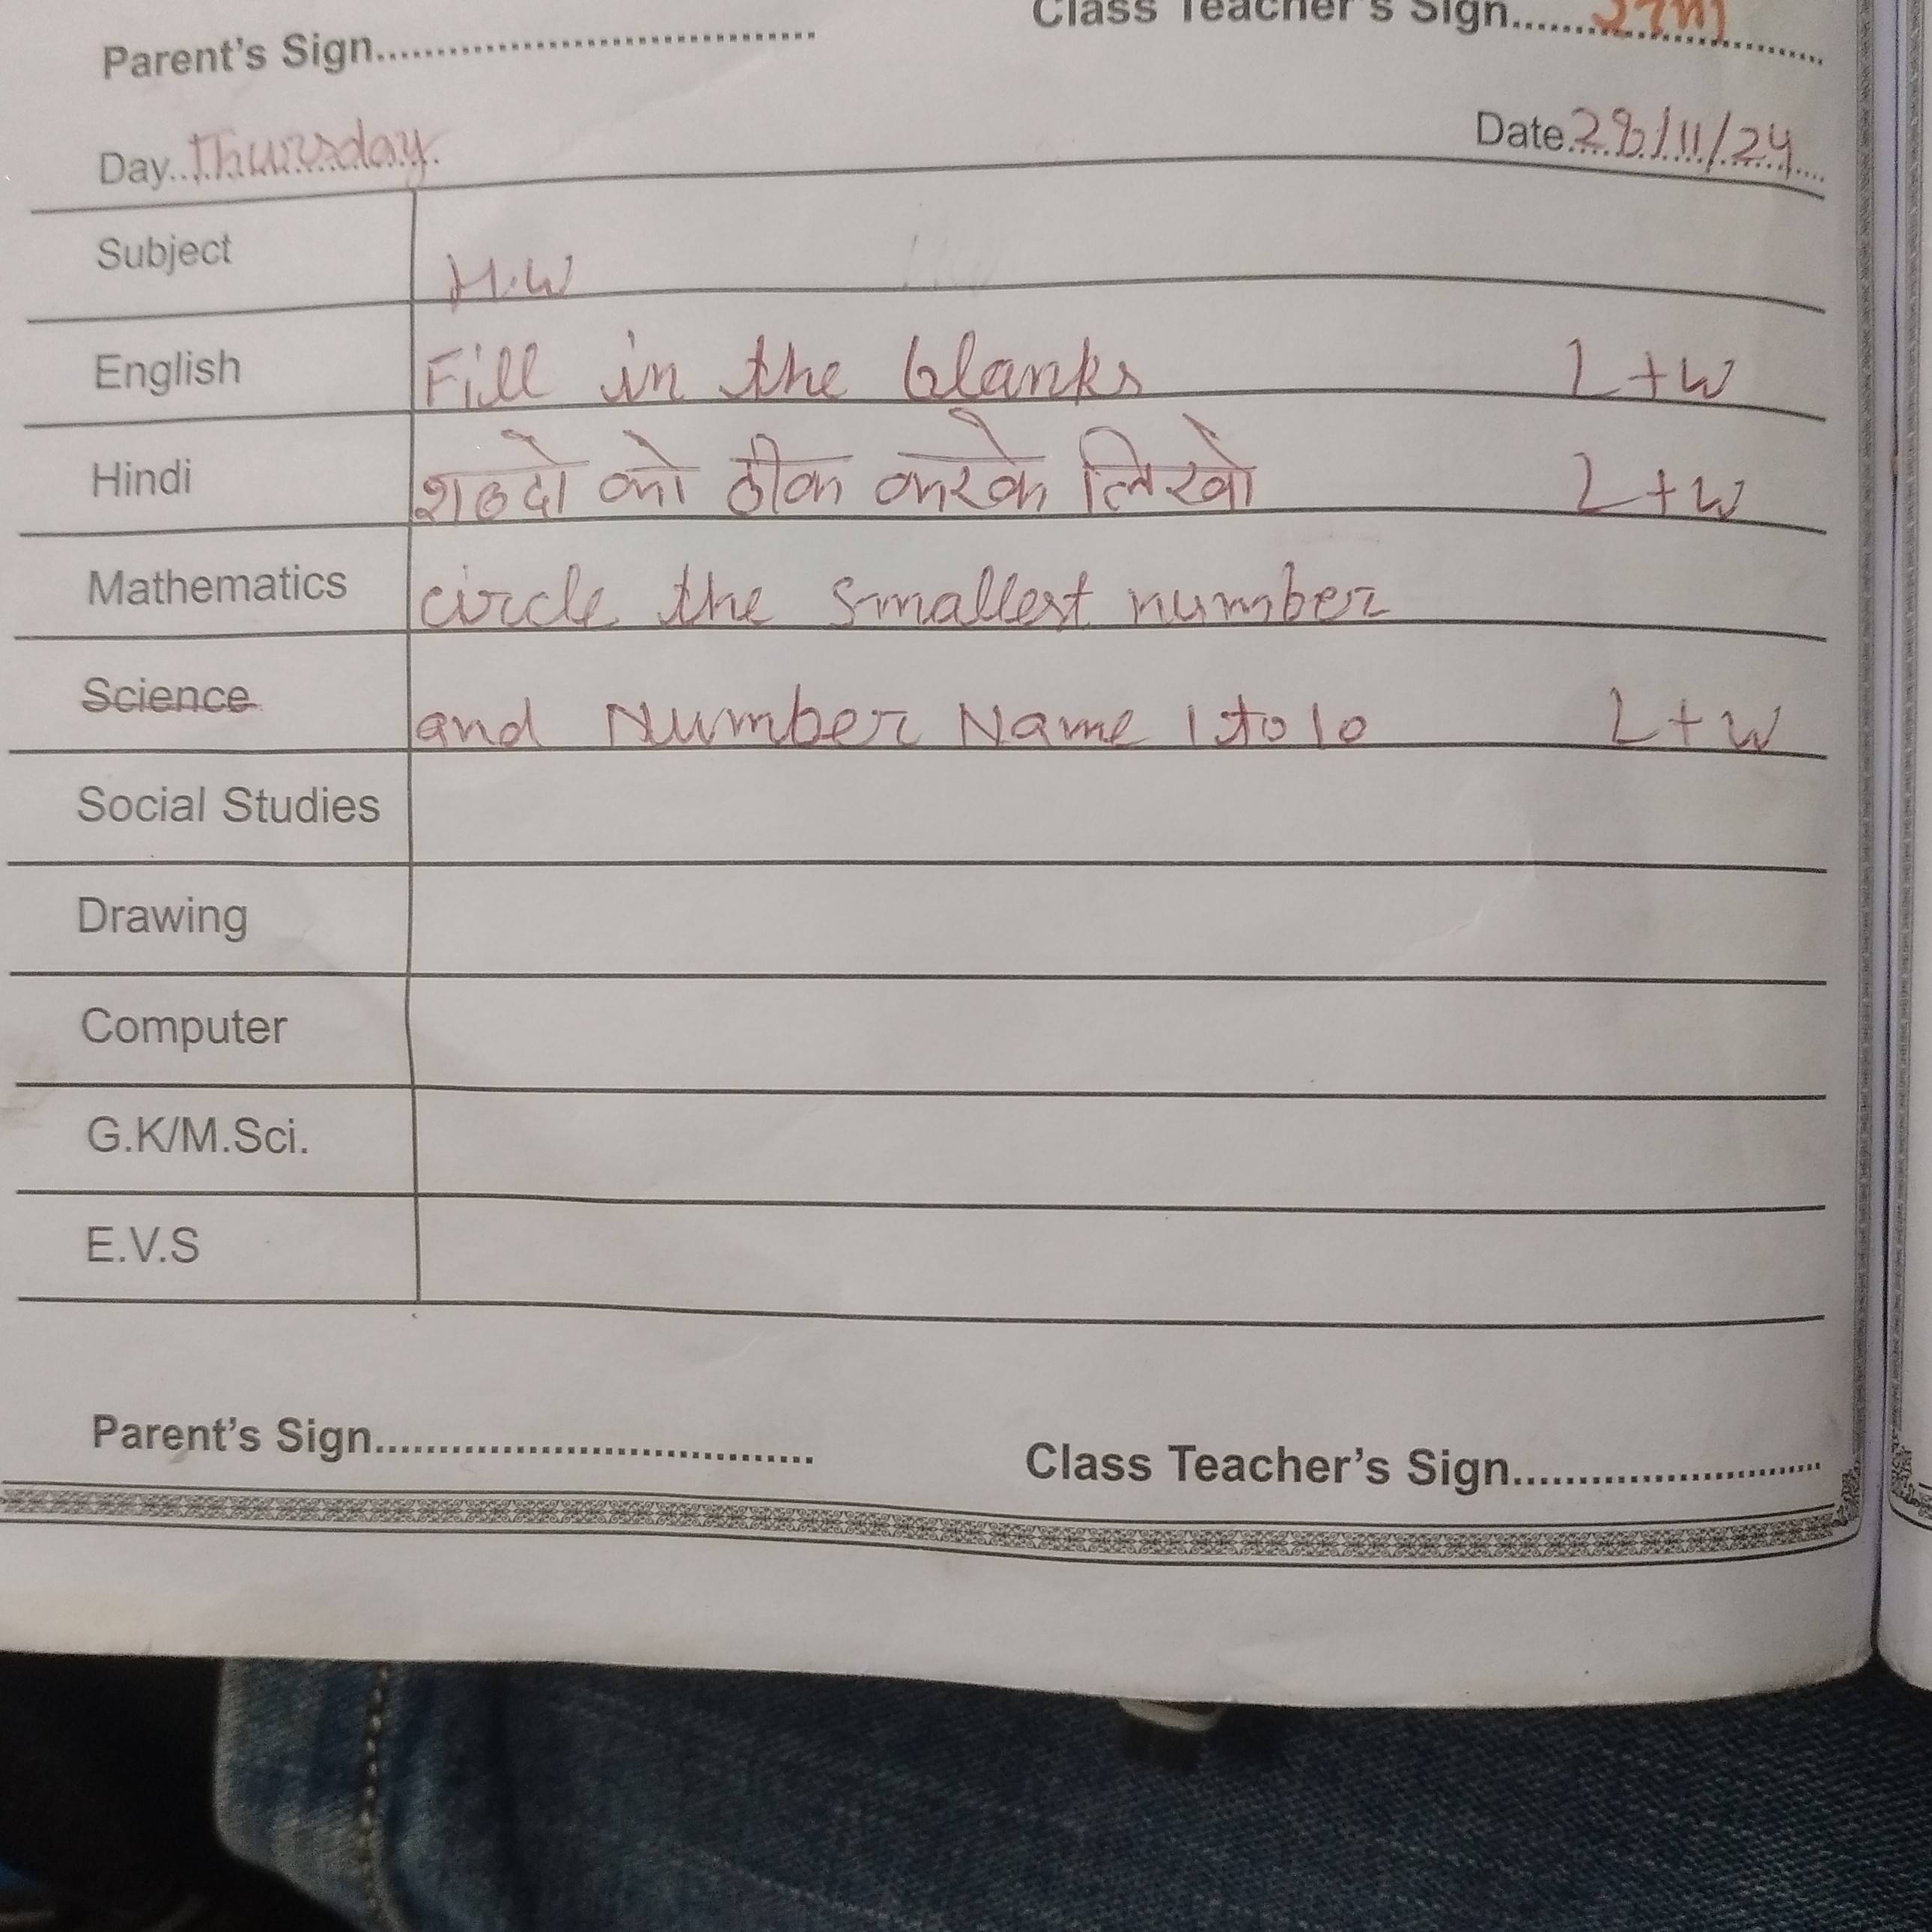 Parent's Sign.................................... Class Teacher's Sign..............................
Day..Thursday. Date 28/11/24
Subject H.W
English Fill in the blanks L+W
Hindi शब्दो को ठीक करके लिखो L+W
Mathematics circle the smallest number
Science and Number Name 1 to 10 L+W
Social Studies
Drawing
Computer
G.K/M.Sci.
E.V.S
Parent's Sign.................................... Class Teacher's Sign..............................